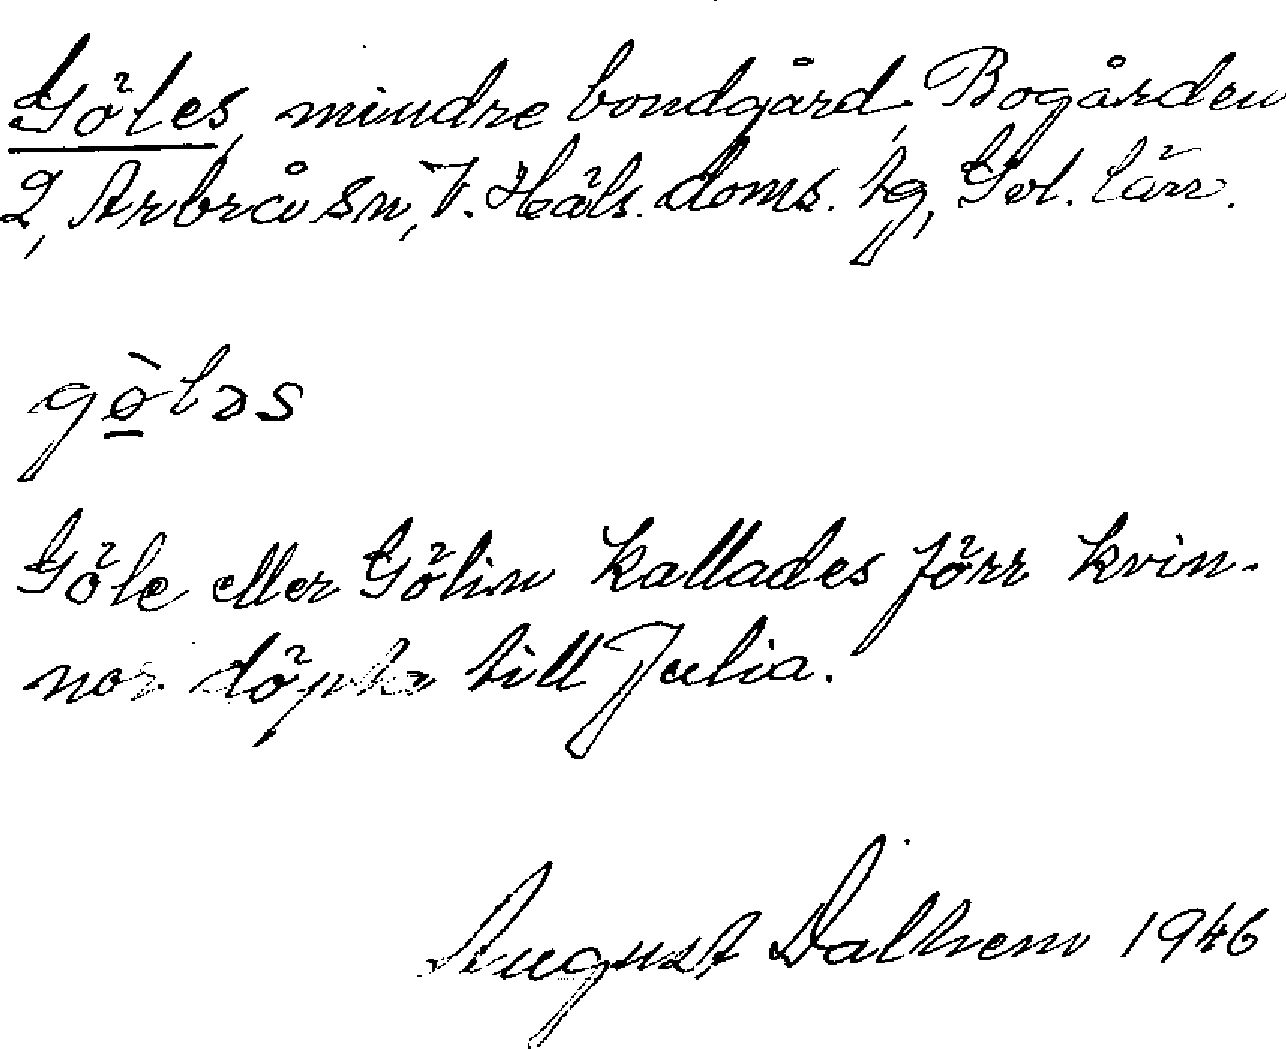 Göles, mindre bondgård, Bogården
2, Arbrå sn, V. Häls. doms. tg, Gvl. län.
gö̀ləs
Göle eller Gölin kallades förr kvin-
nor döpta till Julia.
August Dalhem 1946